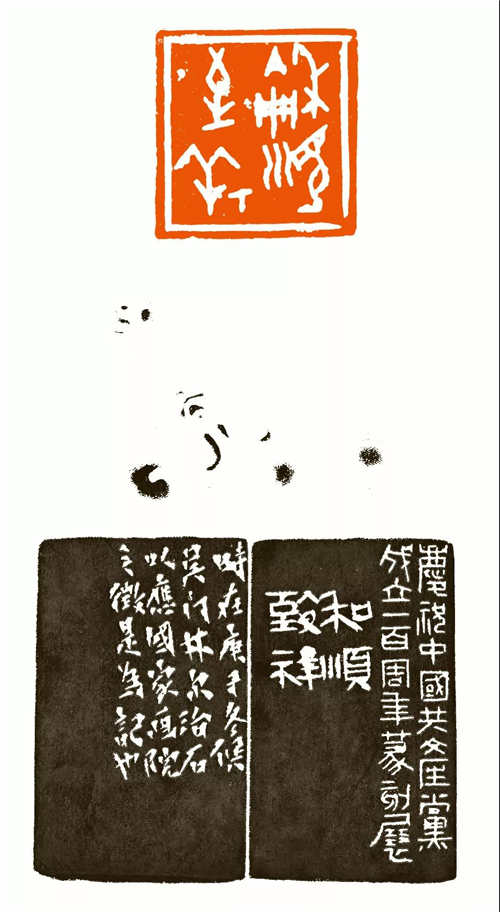 慶祝中國共産黨
成立一百周年篆刻展
和順
致祥
時在庚子冬候
吳门林尔治石
以應國家画院
之徵是為記也